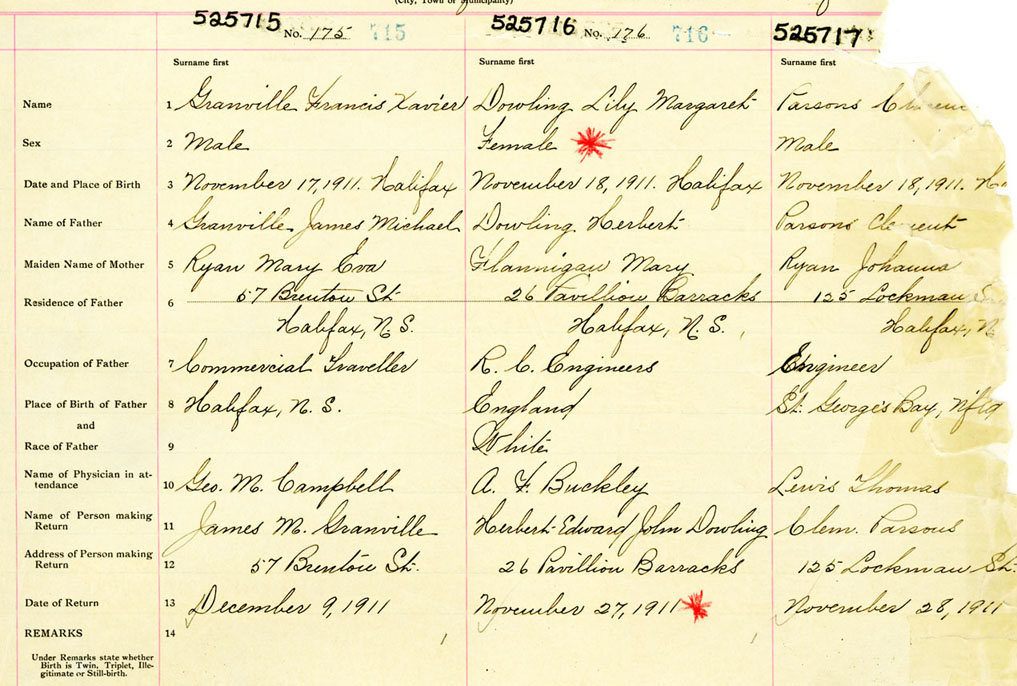 (City, Town or Municipality)
525715 No. 175 715 525716 No. 176 716 525717
Surname first Surname first Surname first
Name 1 Granville Francis Xavier Dowling Lily Margaret Parsons
Sex 2 Male Female Male
Date and Place of Birth 3 November 17, 1911. Halifax November 18, 1911. Halifax November 18, 1911. Ha
Name of Father 4 Granville James Michael Dowling Herbert Parsons Clement
Maiden Name of Mother 5 Ryan Mary Eva Flannigan Mary Ryan Johanna
Residence of Father 6 57 Brenton St. 26 Pavillion Barracks 125 Lockman S
Halifax, N.S. Halifax, N.S. Halifax, N
Occupation of Father 7 Commercial Traveller R. C. Engineers Engineer
Place of Birth of Father 8 Halifax, N.S. England St. George's Bay, Nfld
and
Race of Father 9 White
Name of Physician in at-
tendance 10 Geo. M. Campbell A. F. Buckley Lewis Thomas
Name of Person making
Return 11 James M. Granville Herbert Edward John Dowling Clem. Parsons
Address of Person making
Return 12 57 Brenton St. 26 Pavillion Barracks 125 Lockman St.
Date of Return 13 December 9, 1911 November 27, 1911 November 28, 1911
REMARKS 14
Under Remarks state whether
Birth is Twin, Triplet, Ille-
gitimate or Still-birth.